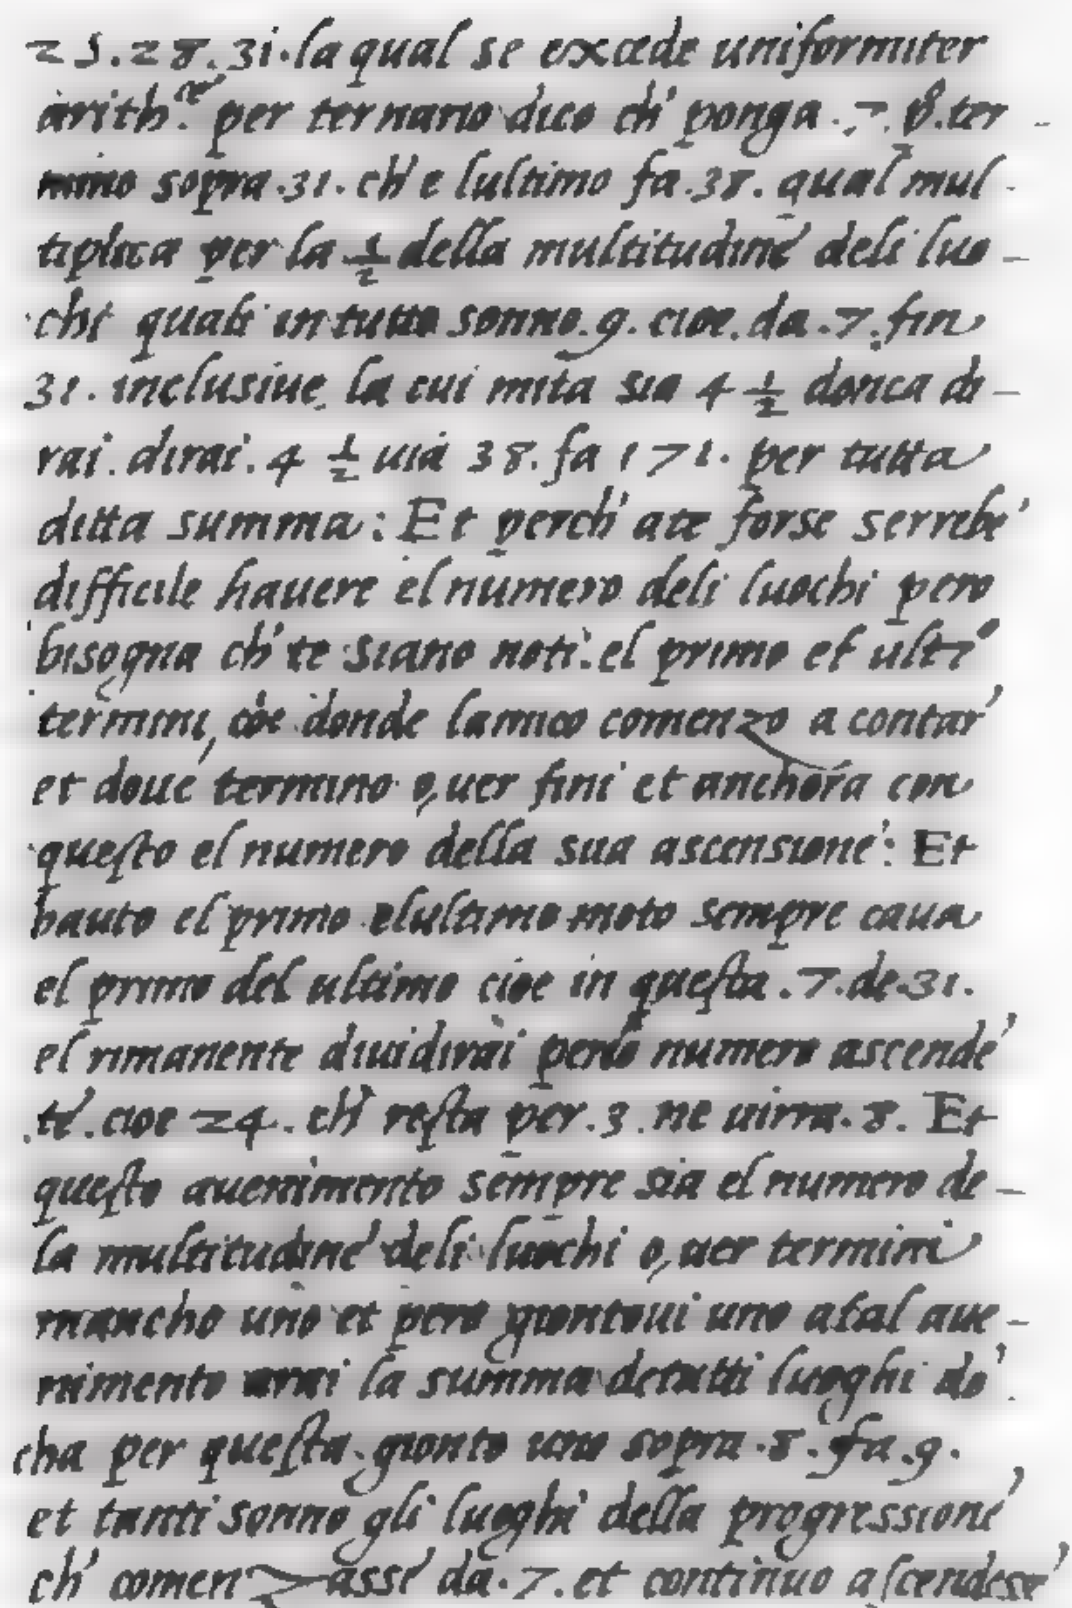 25.28.31. la qual se excede uniformiter
arith.ce per ternario dico ch' ponga .7. p.o ter-
mino sopra .31. ch' e lultimo fa .38. qual mul-
tiplica per la 1/2 della multitudine' deli luo-
chi quali in tutto sonno .9. cioe. da .7. fin
31. inclusiue la cui mita sia 4 1/2 donca di-
rai. dirai. 4 1/2 uia 38. fa 171. per tutta
ditta summa: Et perch' ate forse serrebe'
difficile hauere el numero deli luochi pero
bisogna ch' te siano noti: el primo et ulti.o
termini, cöe donde lamico comenzo a contar'
et doue' termino o, uer fini et anchora con
questo el numero della sua ascensione': Et
hauto el primo elultimo moto sempre caua
el primo del ultimo cioe in questa .7. de .31.
el rimanente diuidirai perlo numero ascende'
te'. cioe 24. ch' resta per .3. ne uirra. 8. Et
questo auenimento sempre sia el numero de-
la multitudine' deli luochi o, uer termini
mancho uno et pero giontoui uno atal aue-
nimento arai la summa detutti luoghi do'
cha per questa. gionto uno sopra .8. fa .9.
et tanti sonno gli luoghi della progressione'
ch' comenzasse' da .7. et continuo ascendese'